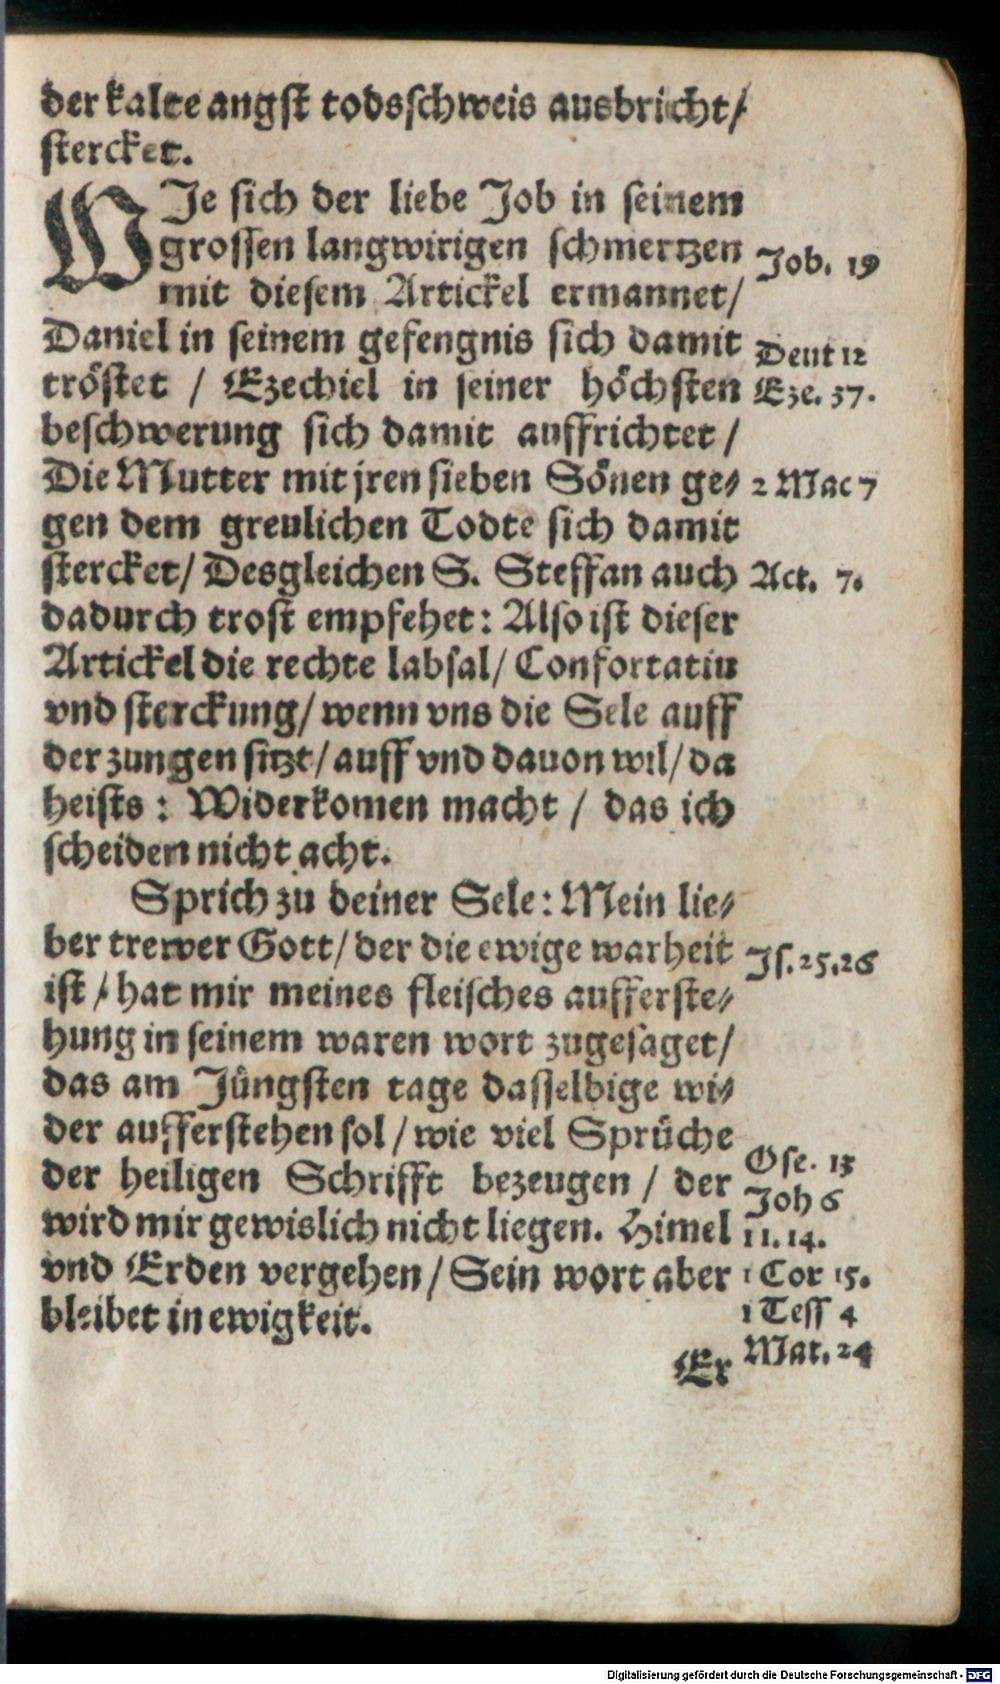 der kalte angst todsschweis ausbricht/
stercket.
WJe sich der liebe Job in seinem
grossen langwirigen schmertzen
Job. 19
mit diesem Artickel ermannet/
Daniel in seinem gefengnis sich damit
Deut 12
tröstet / Ezechiel in seiner höchsten
Eze. 37.
beschwerung sich damit auffrichtet /
Die Mutter mit jren sieben Sönen ge-
2 Mac 7
gen dem greulichen Todte sich damit
stercket/ Desgleichen S. Steffan auch
Act. 7.
dadurch trost empfehet: Also ist dieser
Artickel die rechte labsal/ Confortatiu
vnd sterckung/ wenn vns die Sele auff
der zungen sitzt/ auff vnd dauon wil/ da
heists : Widerkomen macht / das ich
scheiden nicht acht.
Sprich zu deiner Sele: Mein lie-
ber trewer Gott/ der die ewige warheit
Js. 25.26
ist / hat mir meines fleisches aufferste-
hung in seinem waren wort zugesaget/
das am Jüngsten tage dasselbige wi-
der aufferstehen sol / wie viel Sprüche
Ose. 13
der heiligen Schrifft bezeugen / der
Joh 6
wird mir gewislich nicht liegen. Himel
11. 14.
vnd Erden vergehen / Sein wort aber
1 Cor 15.
bleibet in ewigkeit.
1 Tess 4
Mat. 24
Er
Digitalisierung gefördert durch die Deutsche Forschungsgemeinschaft - DFG